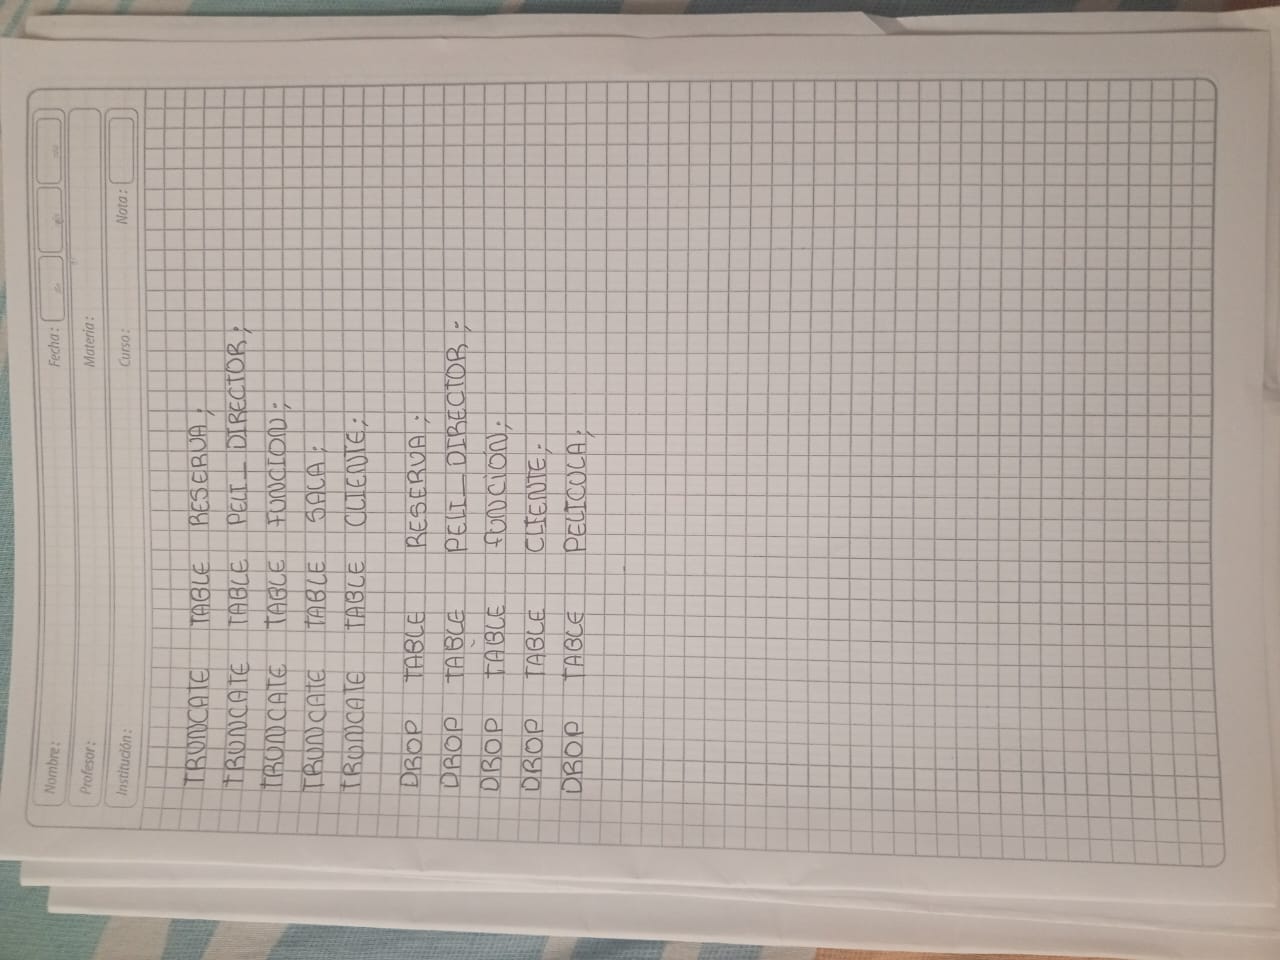 Nombre: Fecha:
Profesor: Materia:
Institución: Curso: Nota:
TRUNCATE TABLE RESERVA;
TRUNCATE TABLE PELI_DIRECTOR;
TRUNCATE TABLE FUNCION;
TRUNCATE TABLE SALA;
TRUNCATE TABLE CLIENTE;
DROP TABLE RESERVA;
DROP TABLE PELI_DIRECTOR;
DROP TABLE FUNCION;
DROP TABLE CLIENTE;
DROP TABLE PELICULA;